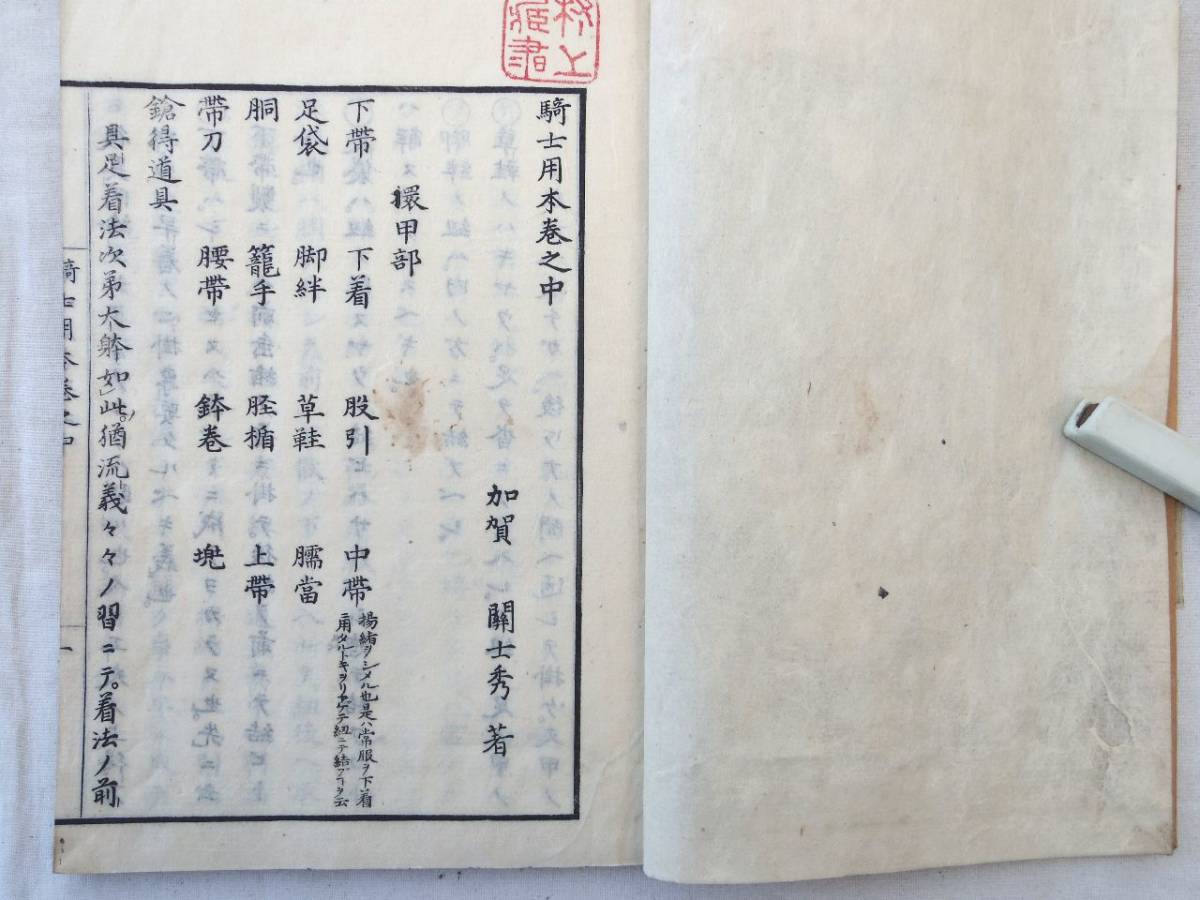 騎士用本巻之中
加賀 關士秀 著
擐甲部
下帶 下着 股引 中帶 揚緒ヲシメル也是ハ常服ヲ下着
ニ用タルトキヲリアゲテ紐ニテ結フヿヲ云
足袋 脚絆 草鞋 臑當
胴 籠手 脛楯 上帶
帶刀 腰帶 鉢巻 兠
鎗得道具
具足着法次第大躰如此猶流義々々ノ習ニテ。着法ノ前
騎士用本巻之中
一
村上